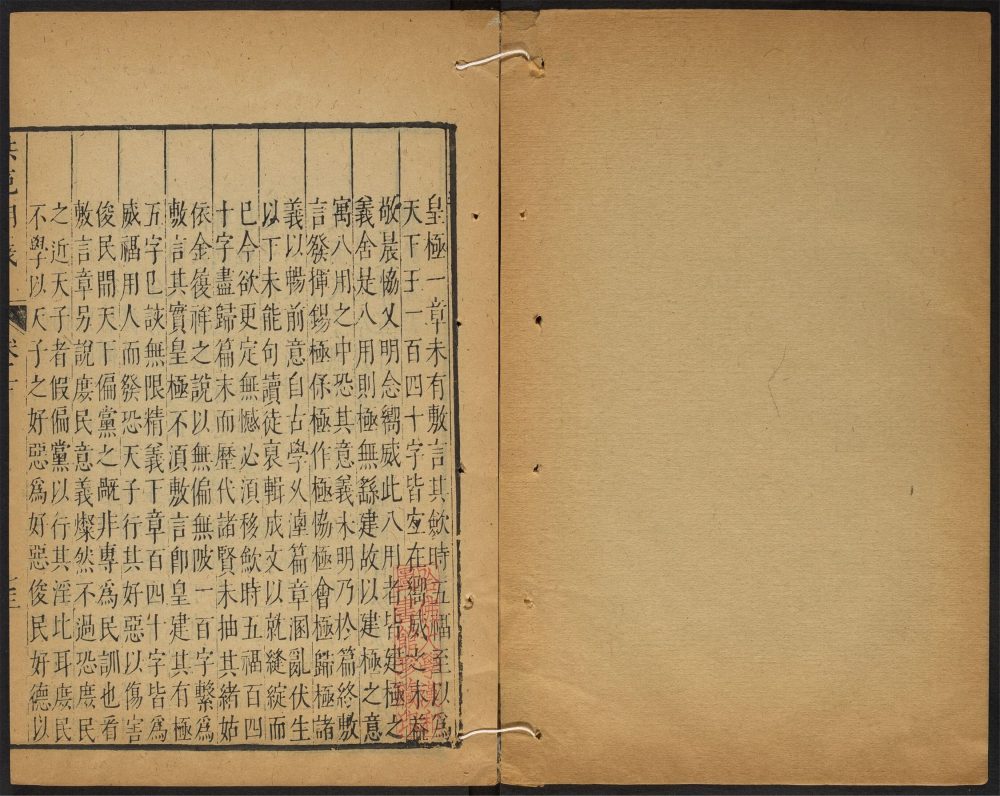 皇極一章未有敷言其歛時五福至以為
天下王一百四十字皆宜在嚮威之末葢
敬農恊乂明念嚮威此八用者皆建極之
義舍是八用則極無繇建故以建極之意
寓八用之中恐其意義未明乃於篇終敷
言發揮錫極保極作極恊極會極歸極諸
義以暢前意自古學乆湮篇章溷亂伏生
以下未能句讀徒裒輯成文以就縫綻而
巳今欲更定無憾必湏移歛時五福百四
十字盡歸篇末而歷代諸賢未抽其緒姑
依金復祥之說以無偏無陂一百字繫為
敷言其實皇極不湏敷言卽皇建其有極
五字巳該無限精義下章百四十字皆為
威福用人而發恐天子行其好惡以傷害
俊民開天下偏黨之㮣非專為民訓也看
敷言章另說庶民意義燦然不過恐庶民
之近天子者假偏黨以行其淫比耳庶民
不學以天子之好惡爲好惡俊民好德以